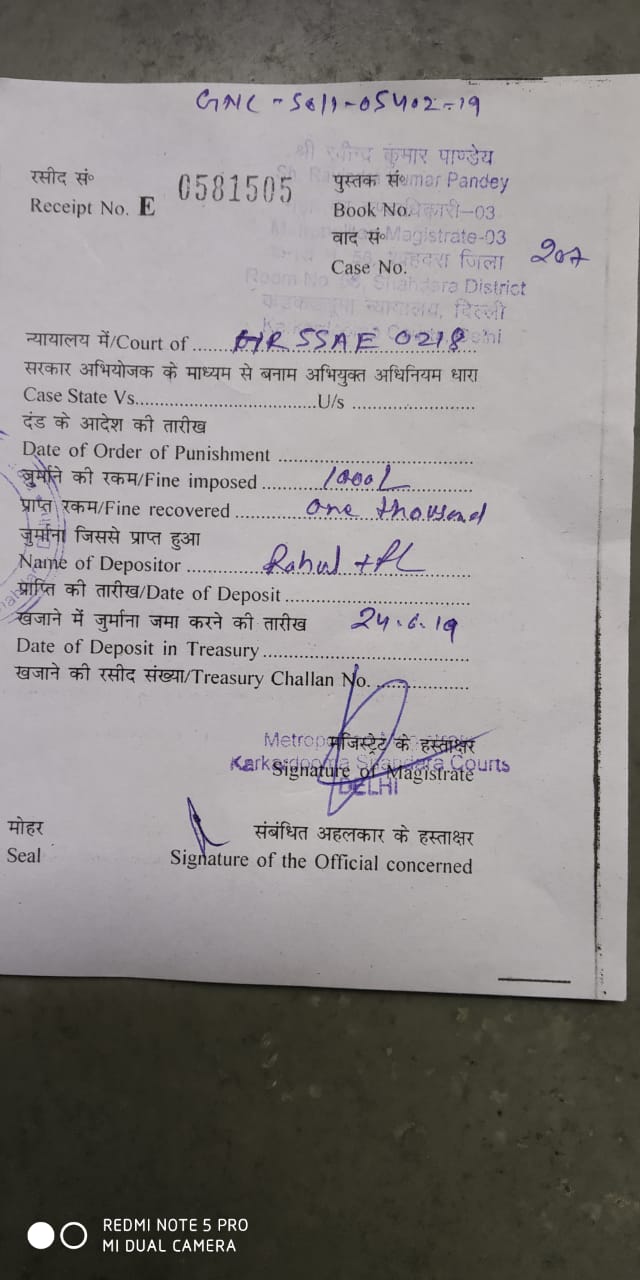 GNC - 5611-05402-19
श्री रवीन्द्र कुमार पाण्डेय
रसीद सं० पुस्तक सं०
Kumar Pandey
Receipt No. E 0581505 Book No.
अधिकारी-03
वाद सं० Magistrate-03
शाहदरा जिला
Case No. 207
Room No 56, Shahdara District
कड़कड़डूमा न्यायालय, दिल्ली
न्यायालय में/Court of ..... HR 55AE 0218
सरकार अभियोजक के माध्यम से बनाम अभियुक्त अधिनियम धारा
Case State Vs..............................U/s ....................
दंड के आदेश की तारीख
Date of Order of Punishment ................................
जुर्माने की रकम/Fine imposed ..... 1000/-
प्राप्त रकम/Fine recovered ..... One thousand
जुर्माना जिससे प्राप्त हुआ
Name of Depositor ..... Rahul
प्राप्ति की तारीख/Date of Deposit ..............................
खजाने में जुर्माना जमा करने की तारीख 24.6.19
Date of Deposit in Treasury ..................................
खजाने की रसीद संख्या/Treasury Challan No. ..................
मजिस्ट्रेट के हस्ताक्षर
Karkardooma Shahdara Courts
Signature of Magistrate
DELHI
मोहर संबंधित अहलकार के हस्ताक्षर
Seal Signature of the Official concerned
REDMI NOTE 5 PRO
MI DUAL CAMERA